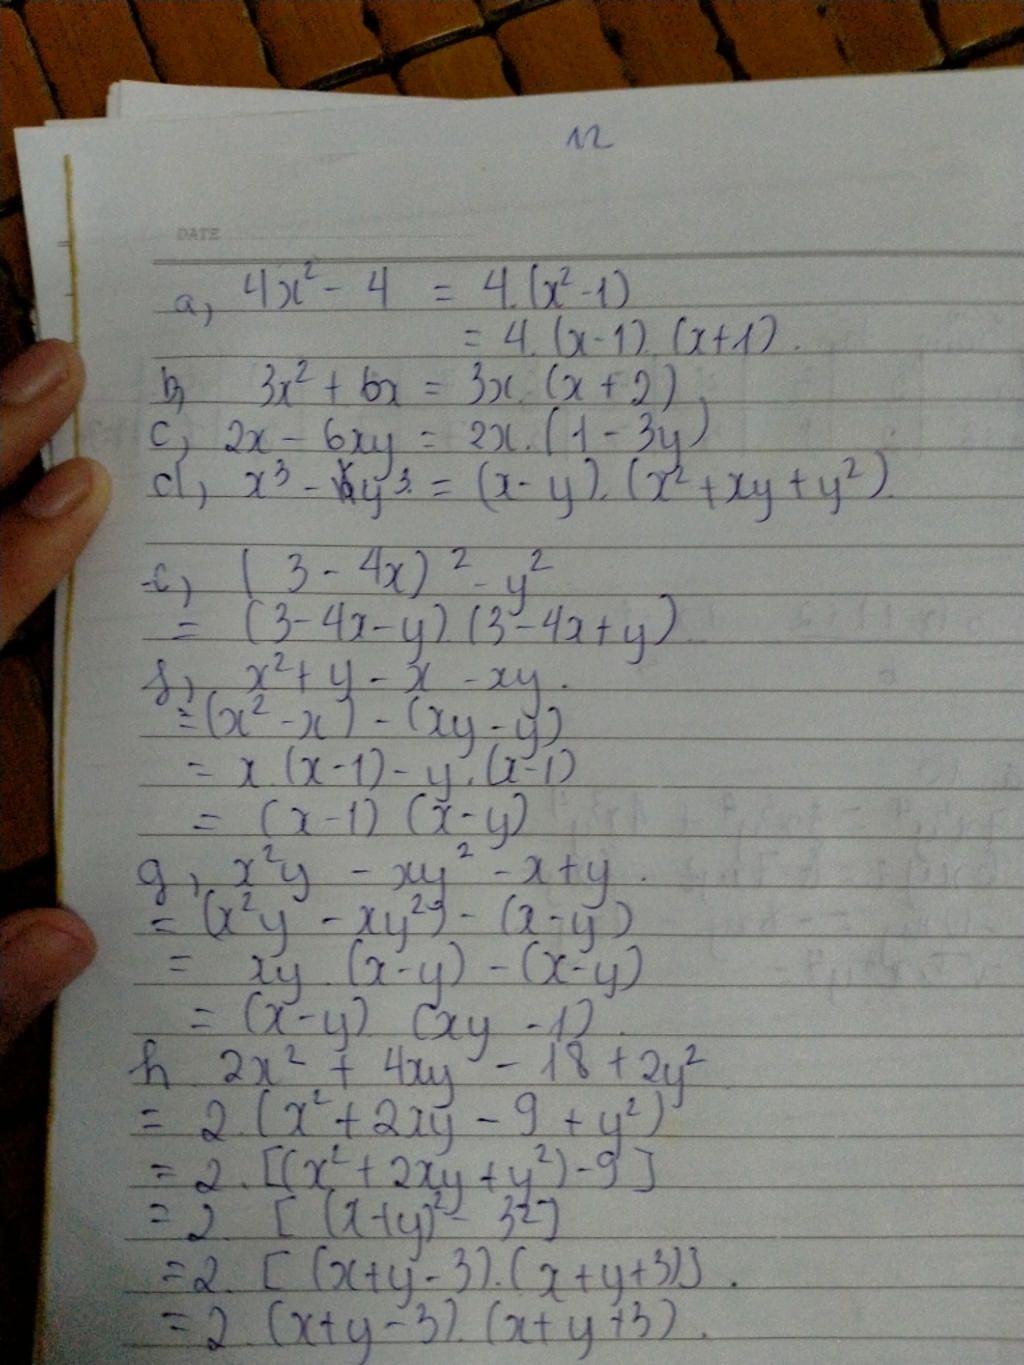 12
DATE
a, 4x² - 4 = 4.(x² - 1)
= 4.(x-1).(x+1).
b, 3x² + 6x = 3x.(x + 2)
c, 2x - 6xy = 2x.(1 - 3y)
d, x³ - y³ = (x - y).(x² + xy + y²)
e, (3 - 4x)² - y²
= (3 - 4x - y).(3 - 4x + y)
f, x² + y - x - xy.
= (x² - x) - (xy - y)
= x.(x-1) - y.(x-1)
= (x-1) (x-y)
g, x²y - xy² - x + y.
= (x²y - xy²) - (x - y)
= xy.(x-y) - (x-y)
= (x-y) (xy - 1).
h 2x² + 4xy - 18 + 2y²
= 2.(x² + 2xy - 9 + y²)
= 2.[(x² + 2xy + y²) - 9]
= 2 [(x+y)² - 3²]
= 2.[(x+y-3).(x+y+3)].
= 2.(x+y-3).(x+y+3).